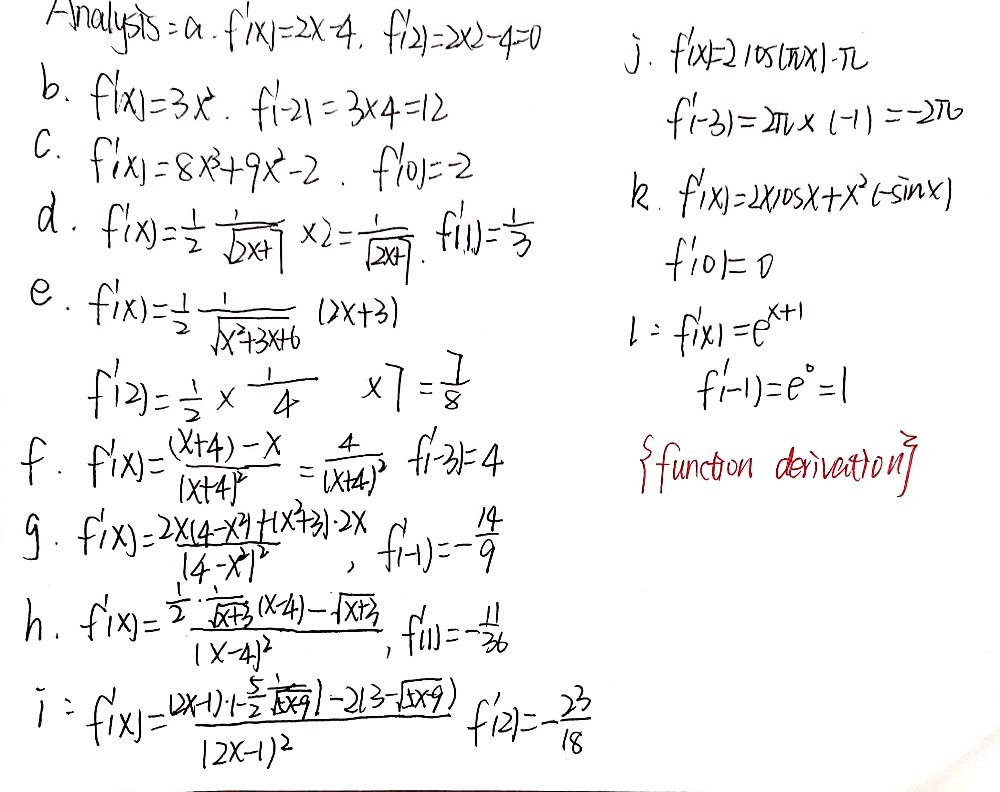 Analysis: a. f'(x)=2x-4. f'(2)=2×2-4=0
b. f'(x)=3x². f'(-2)=3×4=12
c. f'(x)=8x³+9x²-2. f'(0)=-2
d. f'(x)=1/2 1/√(2x+7) ×2=1/√(2x+7). f'(1)=1/3
e. f'(x)=1/2 1/√(x²+3x+6) (2x+3)
f'(2)=1/2 × 1/4 ×7=7/8
f. f'(x)=((x+4)-x)/(x+4)²=4/(x+4)² f'(-3)=4
g. f'(x)=(2x(4-x²)+(x²+3)·2x)/(4-x²)², f'(-1)=-14/9
h. f'(x)=(1/2·1/√(x+3)(x-4)-√(x+3))/(x-4)², f'(1)=-11/36
i: f'(x)=((2x-1)·(-5/2 1/√(5x-9))-2(3-√(5x-9)))/(2x-1)² f'(2)=-23/18
j. f'(x)=2cos(πx)·π
f'(-3)=2π×(-1)=-2π
k. f'(x)=2xcosx+x²(-sinx)
f'(0)=0
l: f'(x)=e^(x+1)
f'(-1)=e⁰=1
{function derivation}